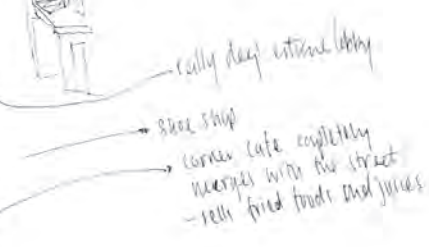 really deep entrance lobby
shoe shop
corner cafe completely
merges with the street
- sells fried foods and juices